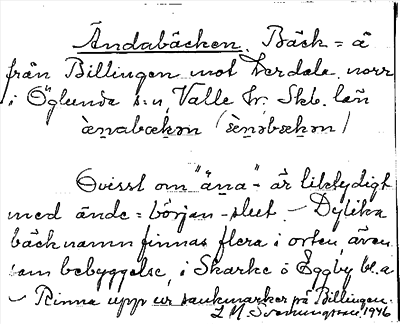 Ändabäcken. Bäck = å
från Billingen mot Lerdala, norr
i Öglunda s:n, Valle hr. Skb. län
ä̀n̥abækən (
Ovisst om "äṇa"- är liktydigt
med ände = början - slut. - Dylika
bäcknamn finnas flera i orten, även
som bebyggelse, i Skarke o Eggby bl.a
- Rinna upp ur sankmarker på Billingen.
1946